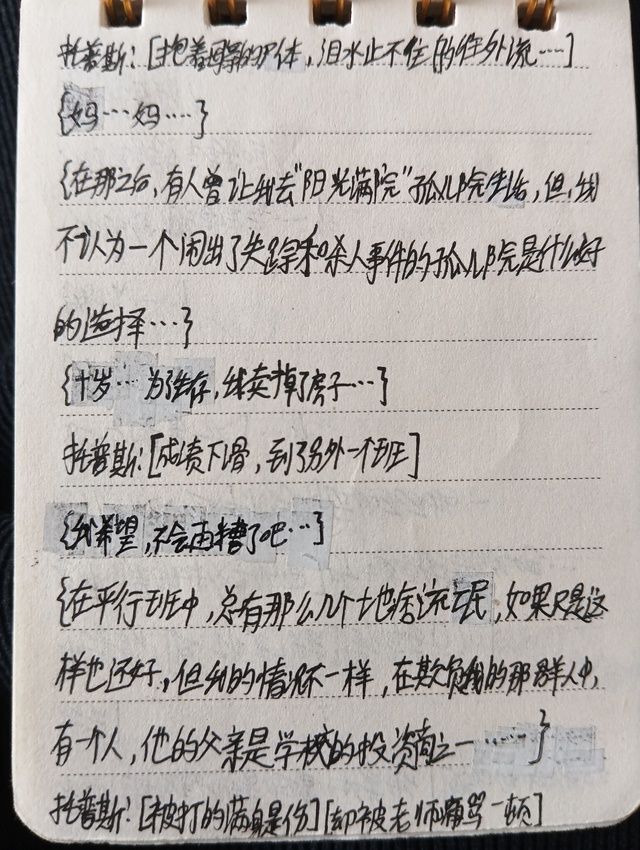 托普斯：[抱着母亲的尸体，泪水止不住的往外流……]
{妈……妈……}
{在那之后，有人曾让我去"阳光满院"孤儿院生活，但，我
不认为一个闹出了失踪和杀人事件的孤儿院是什么好
的选择…}
{十岁…为了生存，我卖掉了房子…}
托普斯：[成绩下滑，到了另外一个班]
{我希望，不会再糟了吧…}
{在平行班中，总有那么几个土地痞流氓，如果只是这
样也还好，但我的情况不一样，在欺负我的那群人中，
有一个人，他的父亲是学校的投资商之一……}
托普斯：[被打的满身是伤][却被老师痛骂一顿]